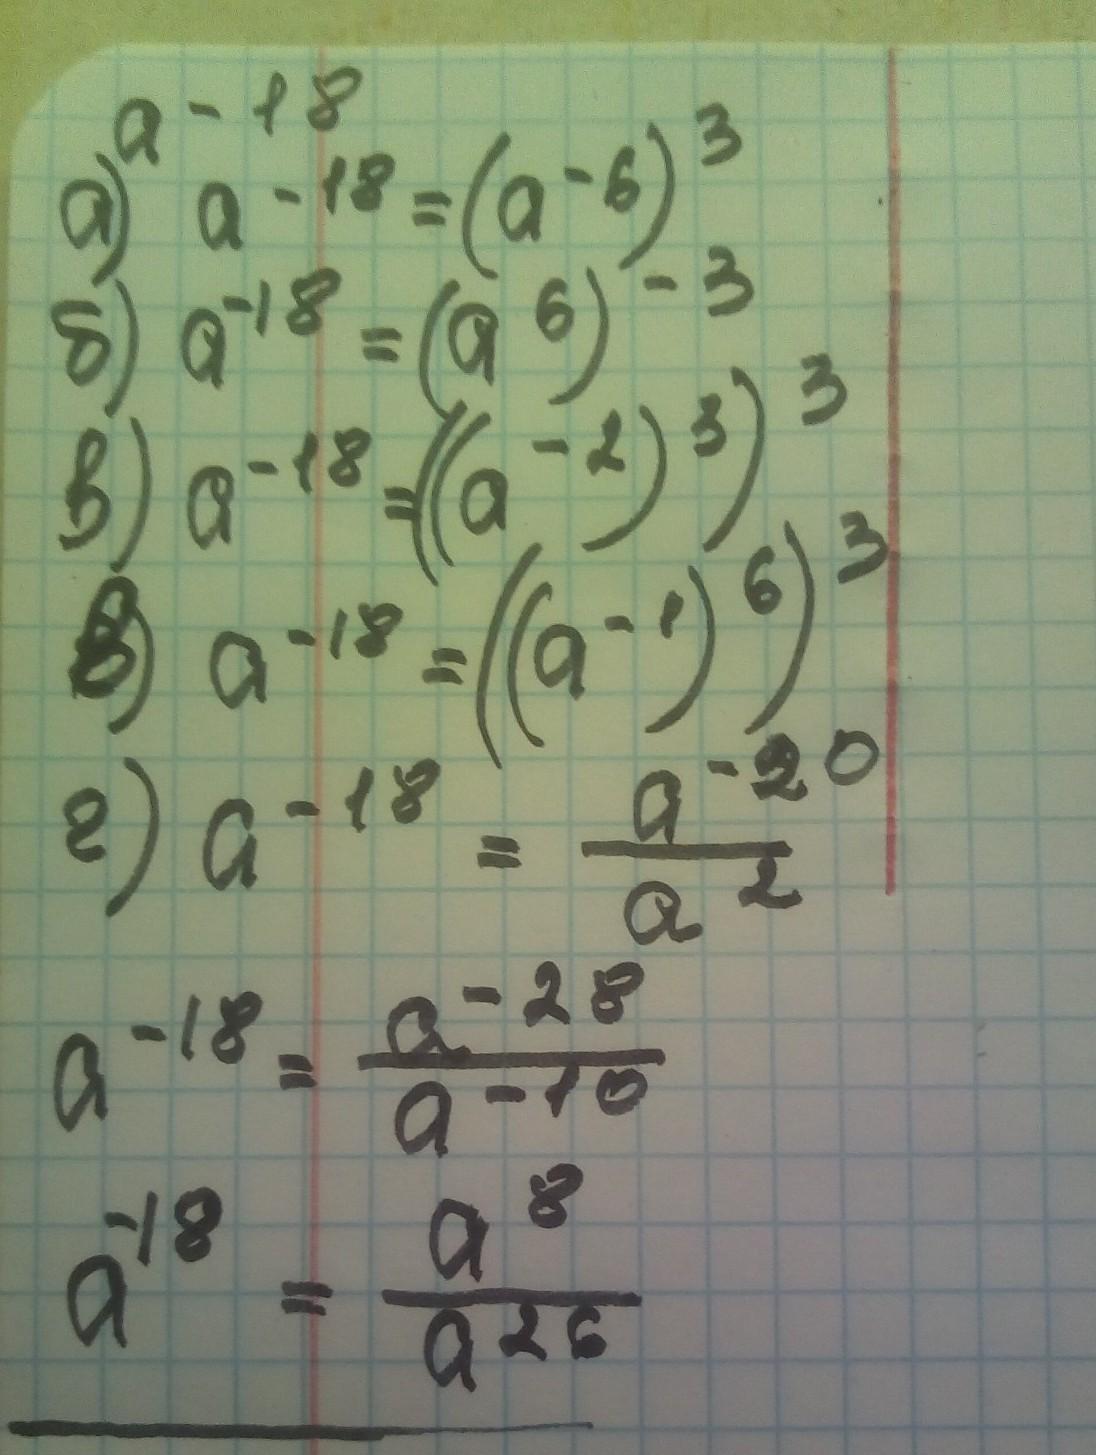 a⁻¹⁸
а) a⁻¹⁸ = (a⁻⁶)³
б) a⁻¹⁸ = (a⁶)⁻³
в) a⁻¹⁸ = ((a⁻²)³)³
в) a⁻¹⁸ = ((a⁻¹)⁶)³
г) a⁻¹⁸ = a⁻²⁰/a²
a⁻¹⁸ = a⁻²⁸/a⁻¹⁰
a⁻¹⁸ = a⁸/a²⁶